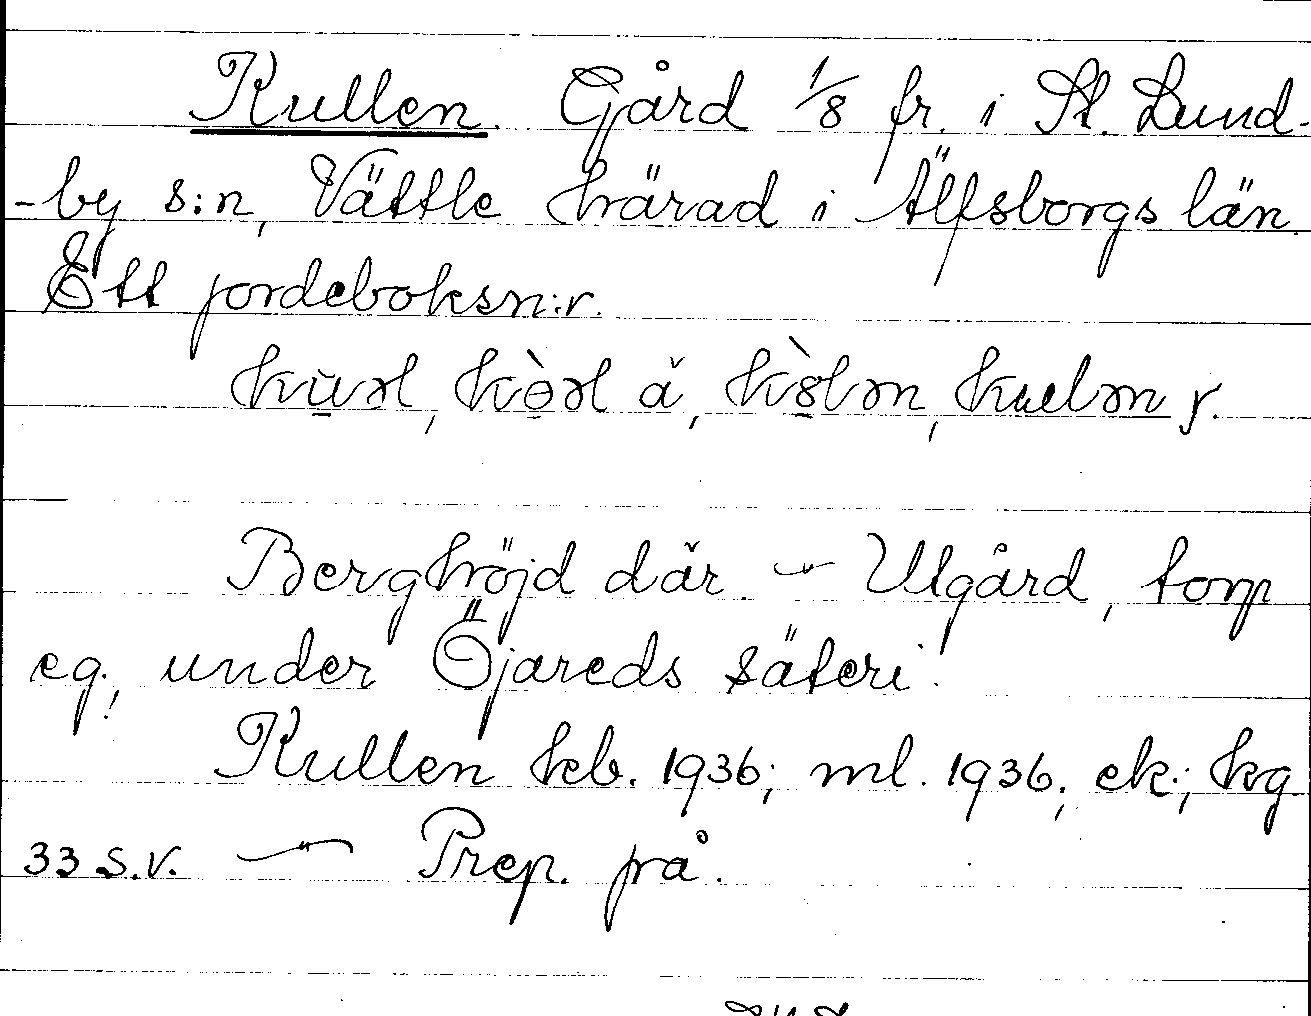 Kullen. Gård 1/8 fr. i St. Lund-
-by s:n, Vättle härad i Älfsborgs län.
Ett jordeboksn:r.
Berghöjd där. – Utgård, torp
eg., under Öjareds säteri.
Kullen kb. 1936; ml. 1936; ek.; kg
33 S.V. – Prep. på.